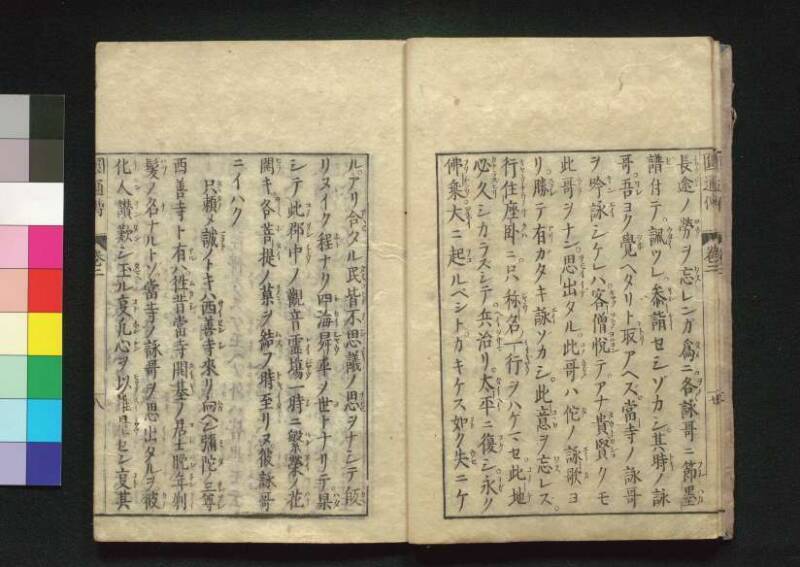 圓通傳 卷二
長途ノ勞ヲ忘レンガ爲ニ各詠哥ニ節墨
譜付テ諷ツレ參詣セシゾカシ其時ノ詠
哥吾ヨク覺ヘタリト取アヘス當寺ノ詠哥
ヲ吟詠シケレハ客僧悦テアナ貴賢クモ
此哥ヲナン思出タル此哥ハ佗ノ詠歌ヨ
リ勝テ有カタキ詠ソカシ此意ヲ忘レス
行住座卧ニ只称名一行ヲハケマセ此地
必久シカラスシテ兵治リ太平ニ復シ永ク
佛乘大ニ起ルベシトカキケス如ク失ニケ
ルアリ合タル民皆不思議ノ思ヲナシテ
リヌイク程ナリ四海昇平ノ世トナリテ果
シテ此郡中ノ觀音靈塲一時ニ繁榮ノ花
開キ各菩提ノ菓ヲ結フ時至リヌ彼詠哥
ニイハク
只頼メ誠ノトキハ西善寺來リ向ヘン彌陀ノ三尊
西善寺ト有ハ往昔當寺開基ノ尼上晩年剃
髪ノ名ナルトソ當寺ノ詠哥ヲ思出タルヲ彼
化人讃歎シ玉ル亥凡心ヲ以セン亥其
圓通傳 卷二 八